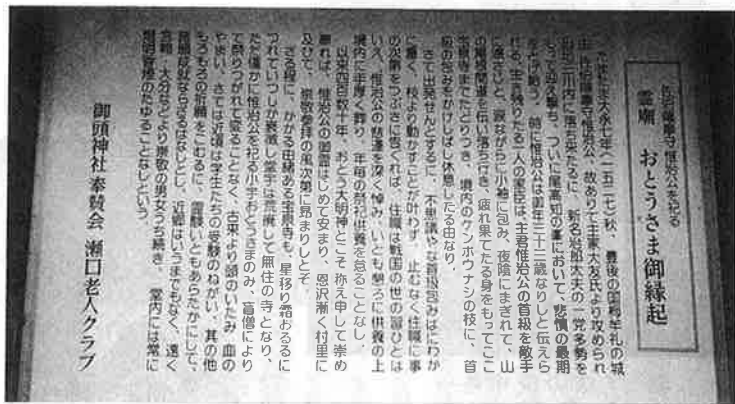 佐伯薩摩守惟治公を祀る
霊廟　おとうさま御縁起
今はむかし大永七年(一五二七)秋、豊後の国栂牟礼の城
主、佐伯薩摩守惟治公、故ありて主家大友氏より攻められ
日向三川内に落ち来たるに、新名治郎大夫の一党多勢を
もって迎え撃ち、ついに尾高知の峯において、悲憤の最期
をとげ給う。時に惟治公は御年三十三歳なりしと伝えら
れる。生き残りたる二人の家臣は、主君惟治公の首級を敵手
に渡さじと、涙ながらに小袖に包み、夜陰にまぎれて、山
の尾根間道を伝い落ち行き、疲れ果てたる身をもってここ
宝泉寺までたどりつき、境内のケンポウナシの枝に、首
級の包みをかけしばし休息したる由なり。
さて出発せんとするに、不思議や な首級包みはにわか
に重く、枝より動かすことが叶わず、止むなく住職に事
の次第をつぶさに告ぐれば、住職は戦国の世の習ひとは
いえ、惟治公の悲運を深く悼み、いとも懇ろに供養の上
境内に手厚く葬り、年毎の祭祀供養を怠ることなし。
以来四百数十年、おとう大明神とこそ称え申して崇め
奉れば、惟治公の御霊はじめて安まり、恩沢漸く村里に
及びて、崇敬参拝の風次第に昂まりしとぞ。
さる程に、かかる由緒ある宝泉寺も、星移り霜おるるに
つれていつしか衰微し堂宇は荒廃して無住の寺となり、
ただ僅かに惟治公を祀る小宇おとうさまのみ、盲僧により
て祭りつがれて変ることなく、古来より頭のいたみ、血の
やまい、さては近頃は学生たちの受験のねがい、其の他
もろもろの祈願をこむるに、霊験いともあらたかにして、
諸願成就ならざるはなしとし、近郷はいうまでもなく、遠く
宮崎・大分などより崇敬の男女うち続き、堂内には常に
燈明香煙のたゆることなしという。
御頭神社奉賛会　瀬口老人クラブ